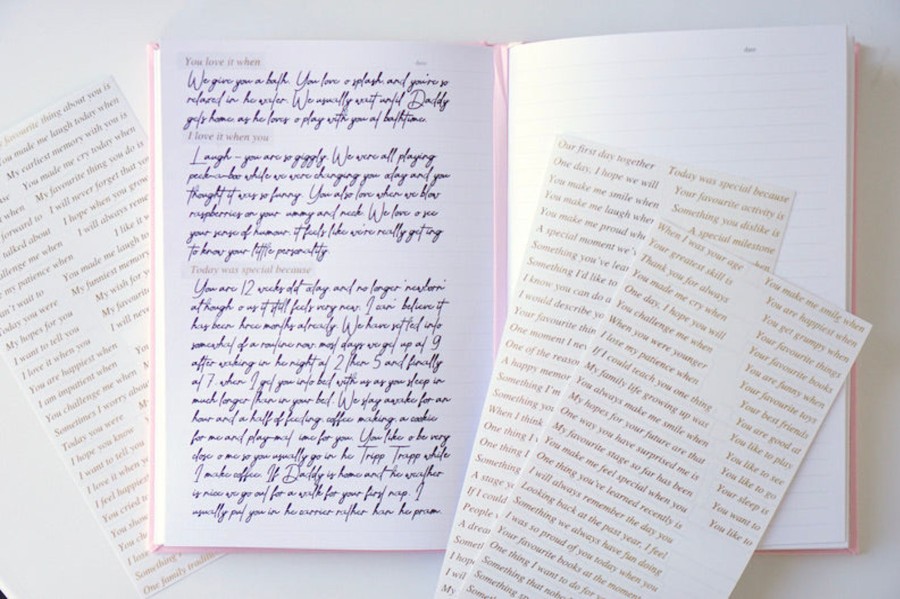 You love it when
date
We give you a bath. You love o splash and you're so
relaxed in he water. We usually wait until Daddy
gets home as he loves o play with you at bathtime.
I love it when you
Laugh - you are so giggly. We were all playing
peek-a-boo while we were changing you oday and you
thought it was so funny. You also love when we blow
raspberries on your ummy and neck. We love o see
your sense of humour, it feels like we're really getting
to know your little personality.
Today was special because
You are 12 weeks old oday and no longer 'newborn'
although o us it still feels very new. I can' believe it
has been hree months already. We have settled into
somewhat of a routine now, most days we get up at 9
after waking in he night at 2 then 5 and finally
at 7 when I get you into bed with us as you sleep in
much longer than in your bed. We stay awake for an
hour and a half of feeding, coffee making, a cookie
for me and playmat ime for you. You like o be very
close o me so you usually go in he Tripp Trapp while
I make coffee. If Daddy is home and he weather
is nice we go out for a walk for your first nap. I
usually put you in he carrier rather han he pram.
date
favourite thing about you is
You made me laugh today when
My earliest memory with you is
You made me cry today when
My favourite thing you do is
I will never forget that
I hope when you grow
I will always
I like it
forward to
talked about
my patience when
You made me laugh
My funniest memory
My wish for
My favourite
I will never
Today you were
My hopes for you
I want to tell you
I love it when you
You are happiest when
I am impatient when
You challenge me when
Sometimes I worry about
Today you were
I hope you know
I want to tell you
I love it when
I feel happiest
You cried
You
You
I hope
Something
One family tradition
Our first day together
One day, I hope we will
You make me smile when
You make me laugh when
You make me proud
A special moment
Something you've
Something I'd like to
I know you can do
I would describe
Your favourite
One moment I
One of the
A happy memory
Something I'm
Something you
When I think
One thing I
One thing
Something
A stage
If I could
People
A dream
I hope
I will
My
Today was special because
Your favourite activity is
Something you dislike is
A special milestone
When I was your age
Your greatest skill is
Thank you for always
You made me cry when
One day, I hope you will
You challenge me when
When you were younger
I lose my patience when
If I could teach you one thing
My family life growing up was
You always make me smile when
My hopes for your future are that
One way you have surprised me is
My favourite stage so far has been
You make me feel special when you
One thing you've learned recently is
I will always remember the day you
Looking back at the past year, I feel
Something we always have fun doing
I was so proud of you today when you
Your favourite books at the moment
One thing I want to do for
Something that
Something
You make me smile when
You are happiest when
You get grumpy when
Your favourite things
Your favourite books
You are funny when
Your favourite toys
Your best friends
You are good at
You like to play
You like to see
You like to go
Your sleep is
You want to
You like to